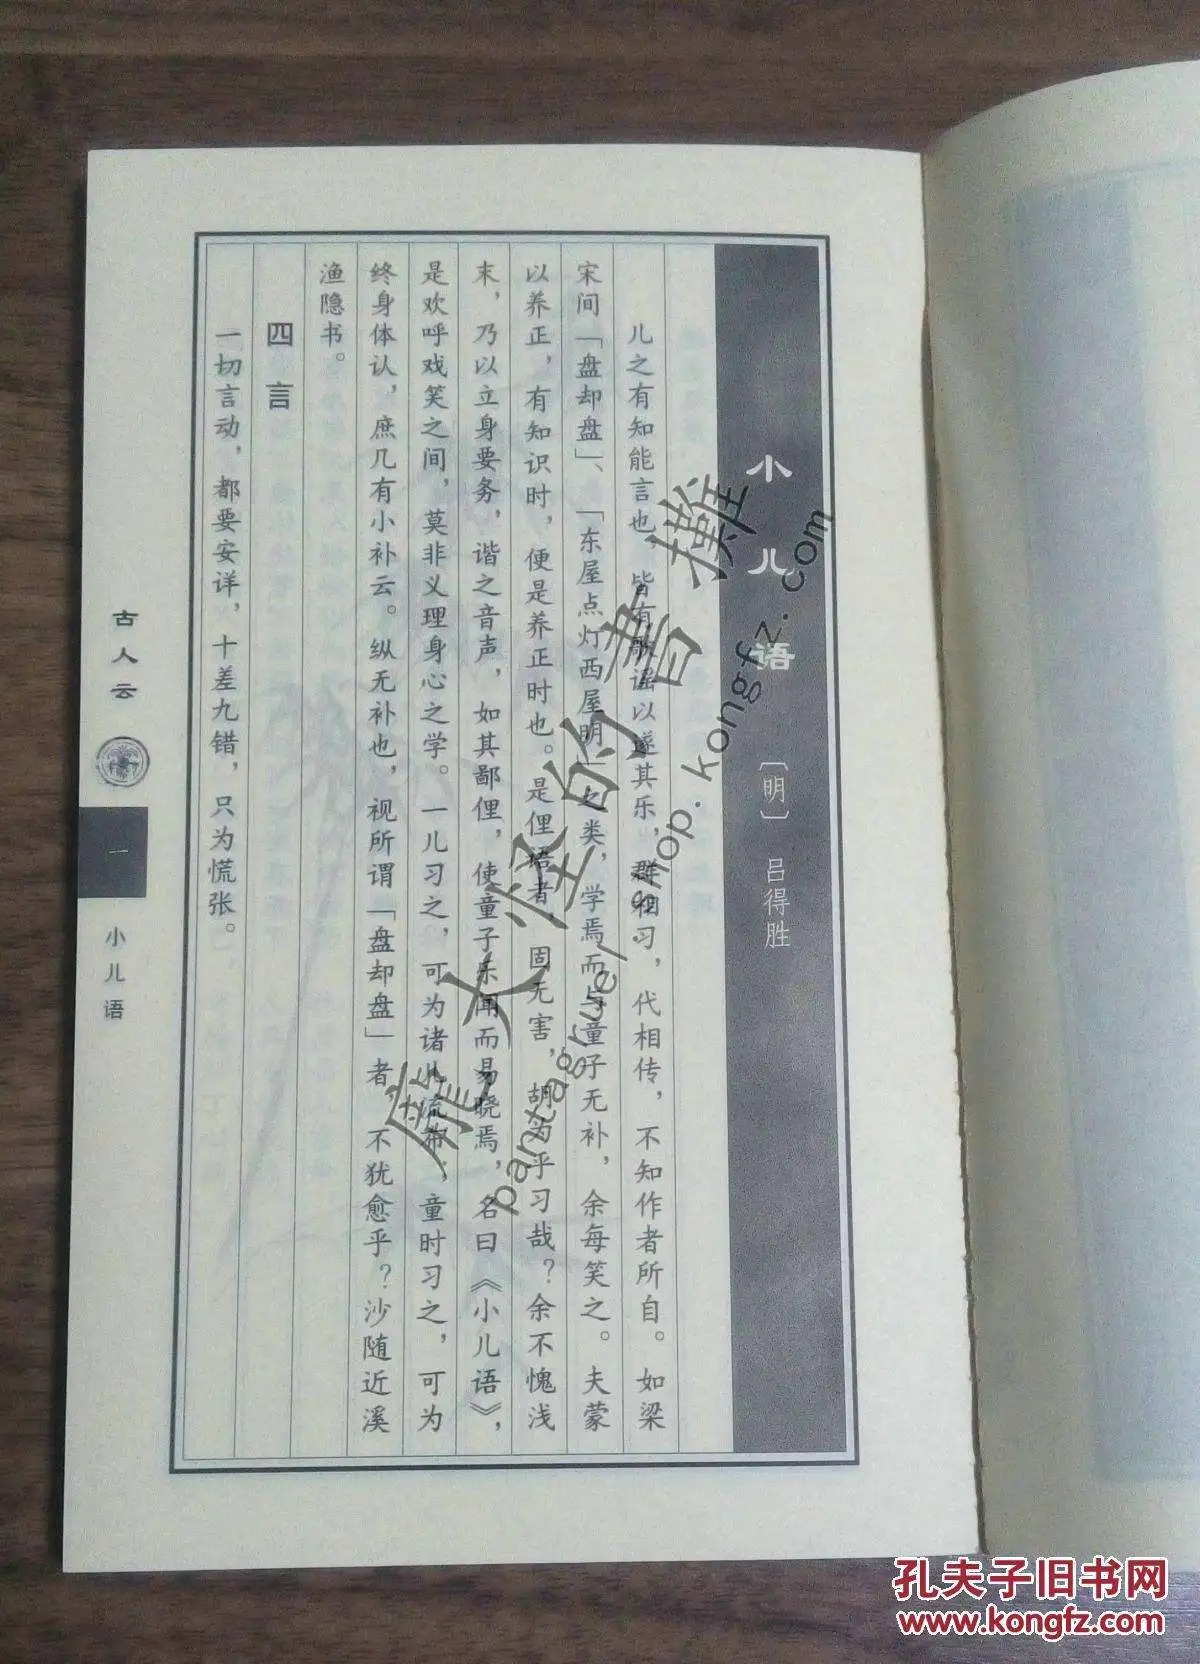 小儿语 〔明〕 吕得胜
儿之有知能言也，皆有歌谣以遂其乐，群相习，代相传，不知作者所自。如梁
宋间「盘却盘」、「东屋点灯西屋明」之类，学焉而与童子无补，余每笑之。夫蒙
以养正，有知识时，便是养正时也。是俚语者，固无害，胡为乎习哉？余不愧浅
末，乃以立身要务，谐之音声，如其鄙俚，使童子乐闻而易晓焉，名曰《小儿语》，
是欢呼戏笑之间，莫非义理身心之学。一儿习之，可为诸儿流布；童时习之，可为
终身体认，庶几有小补云。纵无补也，视所谓「盘却盘」者，不犹愈乎？沙随近溪
渔隐书。
四言
一切言动，都要安详，十差九错，只为慌张。
古人云
一
小儿语
庞大怪的書攤
pantagruel.shop.kongfz.com
孔夫子旧书网
www.kongfz.com